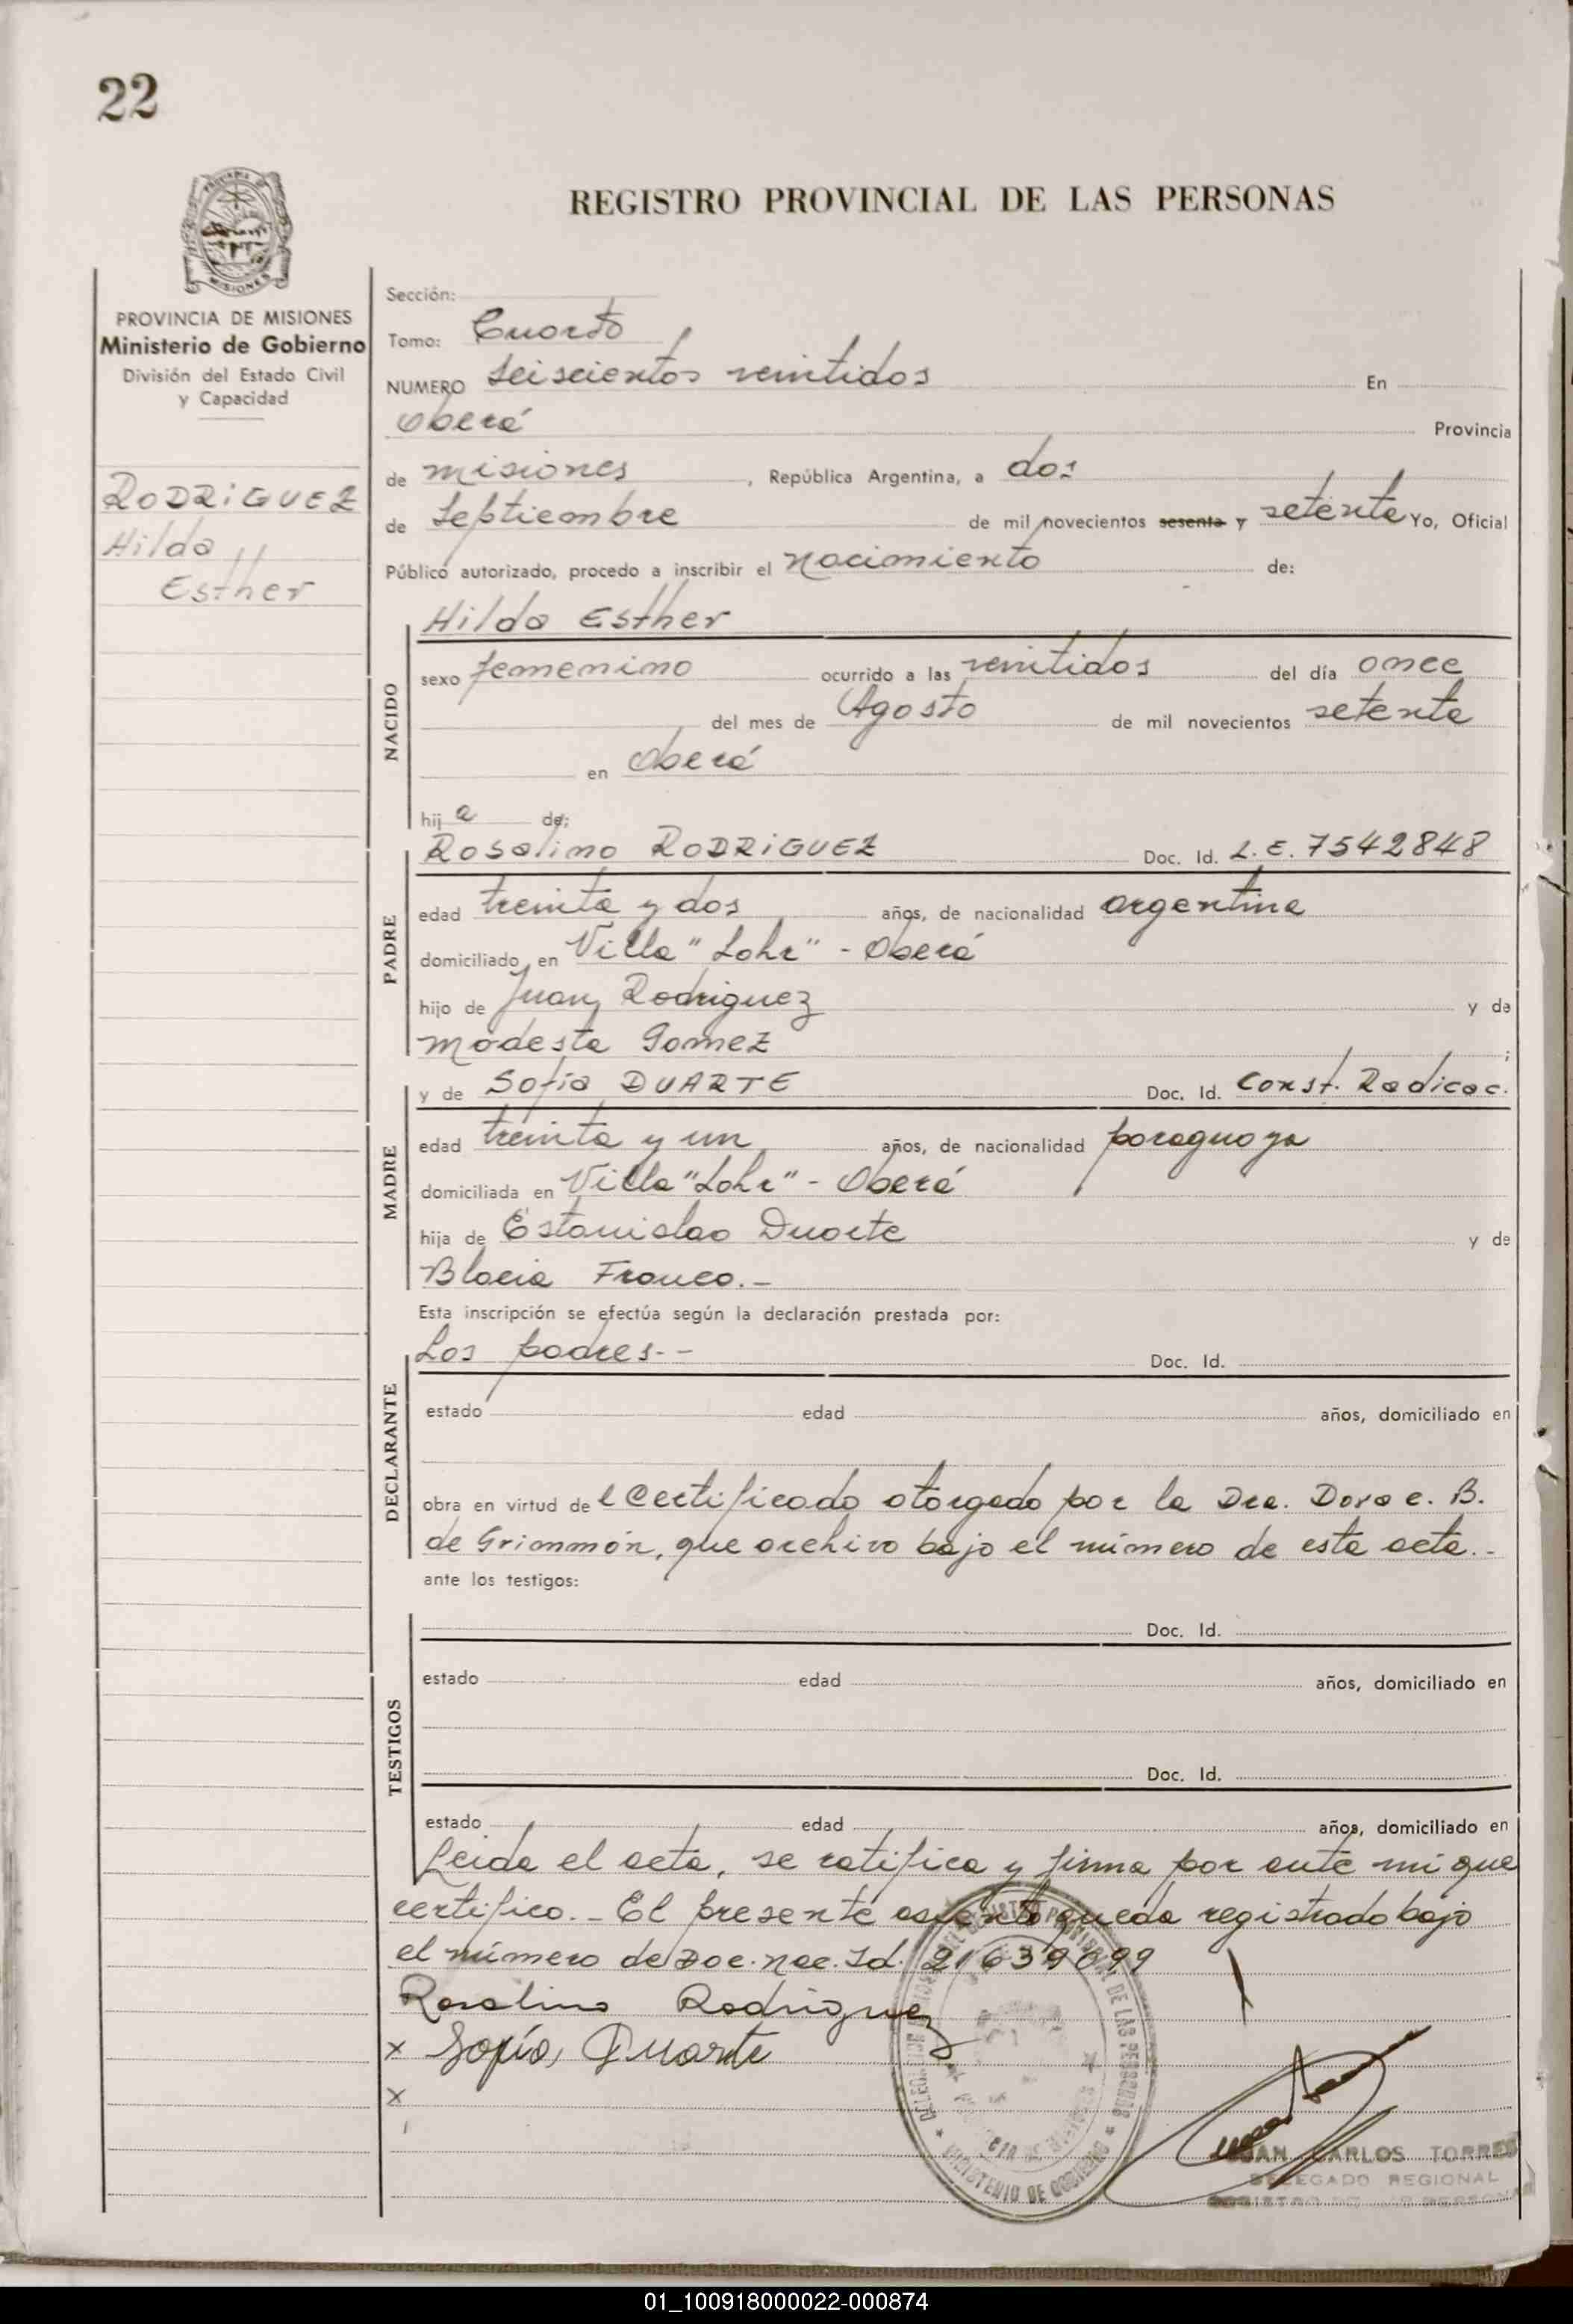 22
REGISTRO PROVINCIAL DE LAS PERSONAS
MISIONES
PROVINCIA DE MISIONES
Ministerio de Gobierno
División del Estado Civil
y Capacidad
RODRIGUEZ
Hilda
Esther
Sección:
Tomo: Cuarto
NUMERO Seiscientos veintidos En
Oberá Provincia
de misiones, República Argentina, a dos
de Septiembre de mil novecientos sesenta y setenta Yo, Oficial
Público autorizado, procedo a inscribir el nacimiento de:
Hilda Esther
NACIDO
sexo femenino ocurrido a las veintidos del día once
del mes de Agosto de mil novecientos setenta
en Oberá
hij a de:
Rosalino RODRIGUEZ Doc. Id. L.E. 7542848
PADRE
edad treinta y dos años, de nacionalidad argentina
domiciliado en Villa "Lohr" - Oberá
hijo de Juan Rodriguez y de
Modesta Gomez ;
y de Sofia DUARTE Doc. Id. Const. Radicac.
MADRE
edad treinta y un años, de nacionalidad paraguaya
domiciliada en Villa "Lohr" - Oberá
hija de Estanislao Duarte y de
Blacia Franco.-
Esta inscripción se efectúa según la declaración prestada por:
Los padres.-- Doc. Id.
DECLARANTE
estado edad años, domiciliado en
obra en virtud de l Certificado otorgado por la Dra. Dora e. B.
de Grimmón, que archivo bajo el número de esta acta.-
ante los testigos:
TESTIGOS
Doc. Id.
estado edad años, domiciliado en
Doc. Id.
estado edad años, domiciliado en
Leida el acta, se ratifica y firma por ante mi que
certifico.- El presente asiento queda registrado bajo
el número de Doc. nac. Id. 21639099
Rosalino Rodriguez
x Sofía Duarte
x
MINISTERIO DE GOBIERNO
JUAN CARLOS TORRES
DELEGADO REGIONAL
01_100918000022-000874